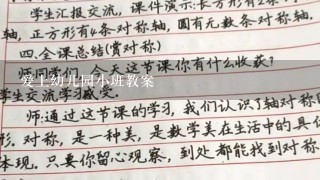 学生汇报交流, 课件演示:长方形有2条
轴, 正方形有4条对称轴, 圆有无数条对称轴.
四.全课总结(赏对称)
师:今天这节课你有什么收获?
爱上幼儿园小班教案
学生交流学习
师:通过这节课的学习, 我们认识了轴对称
形. 对称, 是一种美, 是数学美在生活中的具
体现. 只要你留心观察, 到处都能找到对称